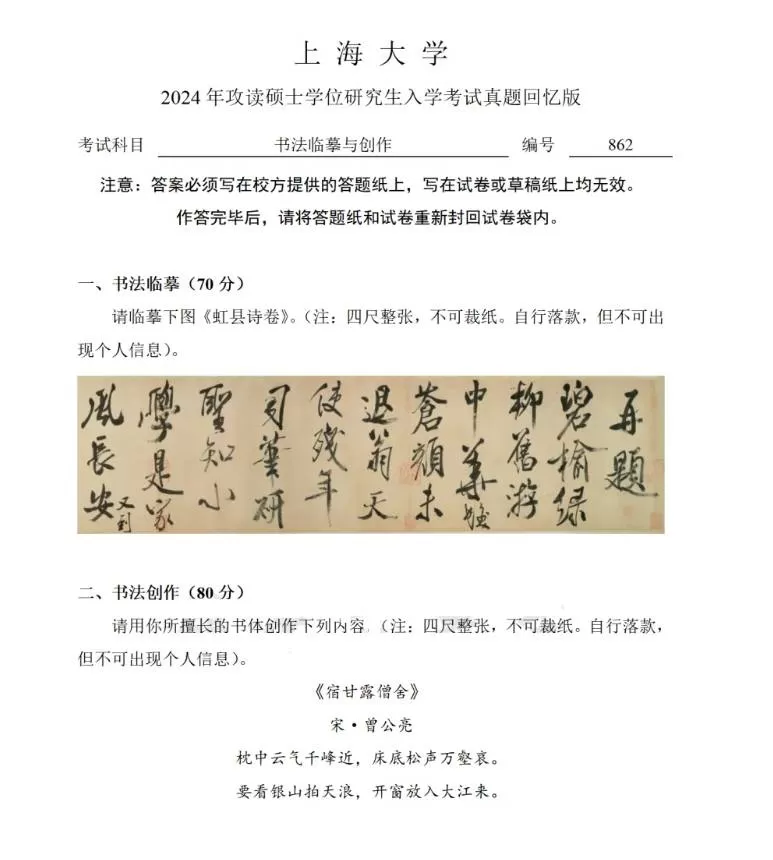 上海大学
2024 年攻读硕士学位研究生入学考试真题回忆版
考试科目 书法临摹与创作 编号 862
注意：答案必须写在校方提供的答题纸上，写在试卷或草稿纸上均无效。
作答完毕后，请将答题纸和试卷重新封回试卷袋内。
一、书法临摹（70 分）
请临摹下图《虹县诗卷》。（注：四尺整张，不可裁纸。自行落款，但不可出
现个人信息）。
再題
碧榆緑
柳舊游
中華髮
蒼顏未
退翁天
使殘年
司筆研
聖知小
學是家
風長安又到
二、书法创作（80 分）
请用你所擅长的书体创作下列内容。（注：四尺整张，不可裁纸。自行落款，
但不可出现个人信息）。
《宿甘露僧舍》
宋·曾公亮
枕中云气千峰近，床底松声万壑哀。
要看银山拍天浪，开窗放入大江来。